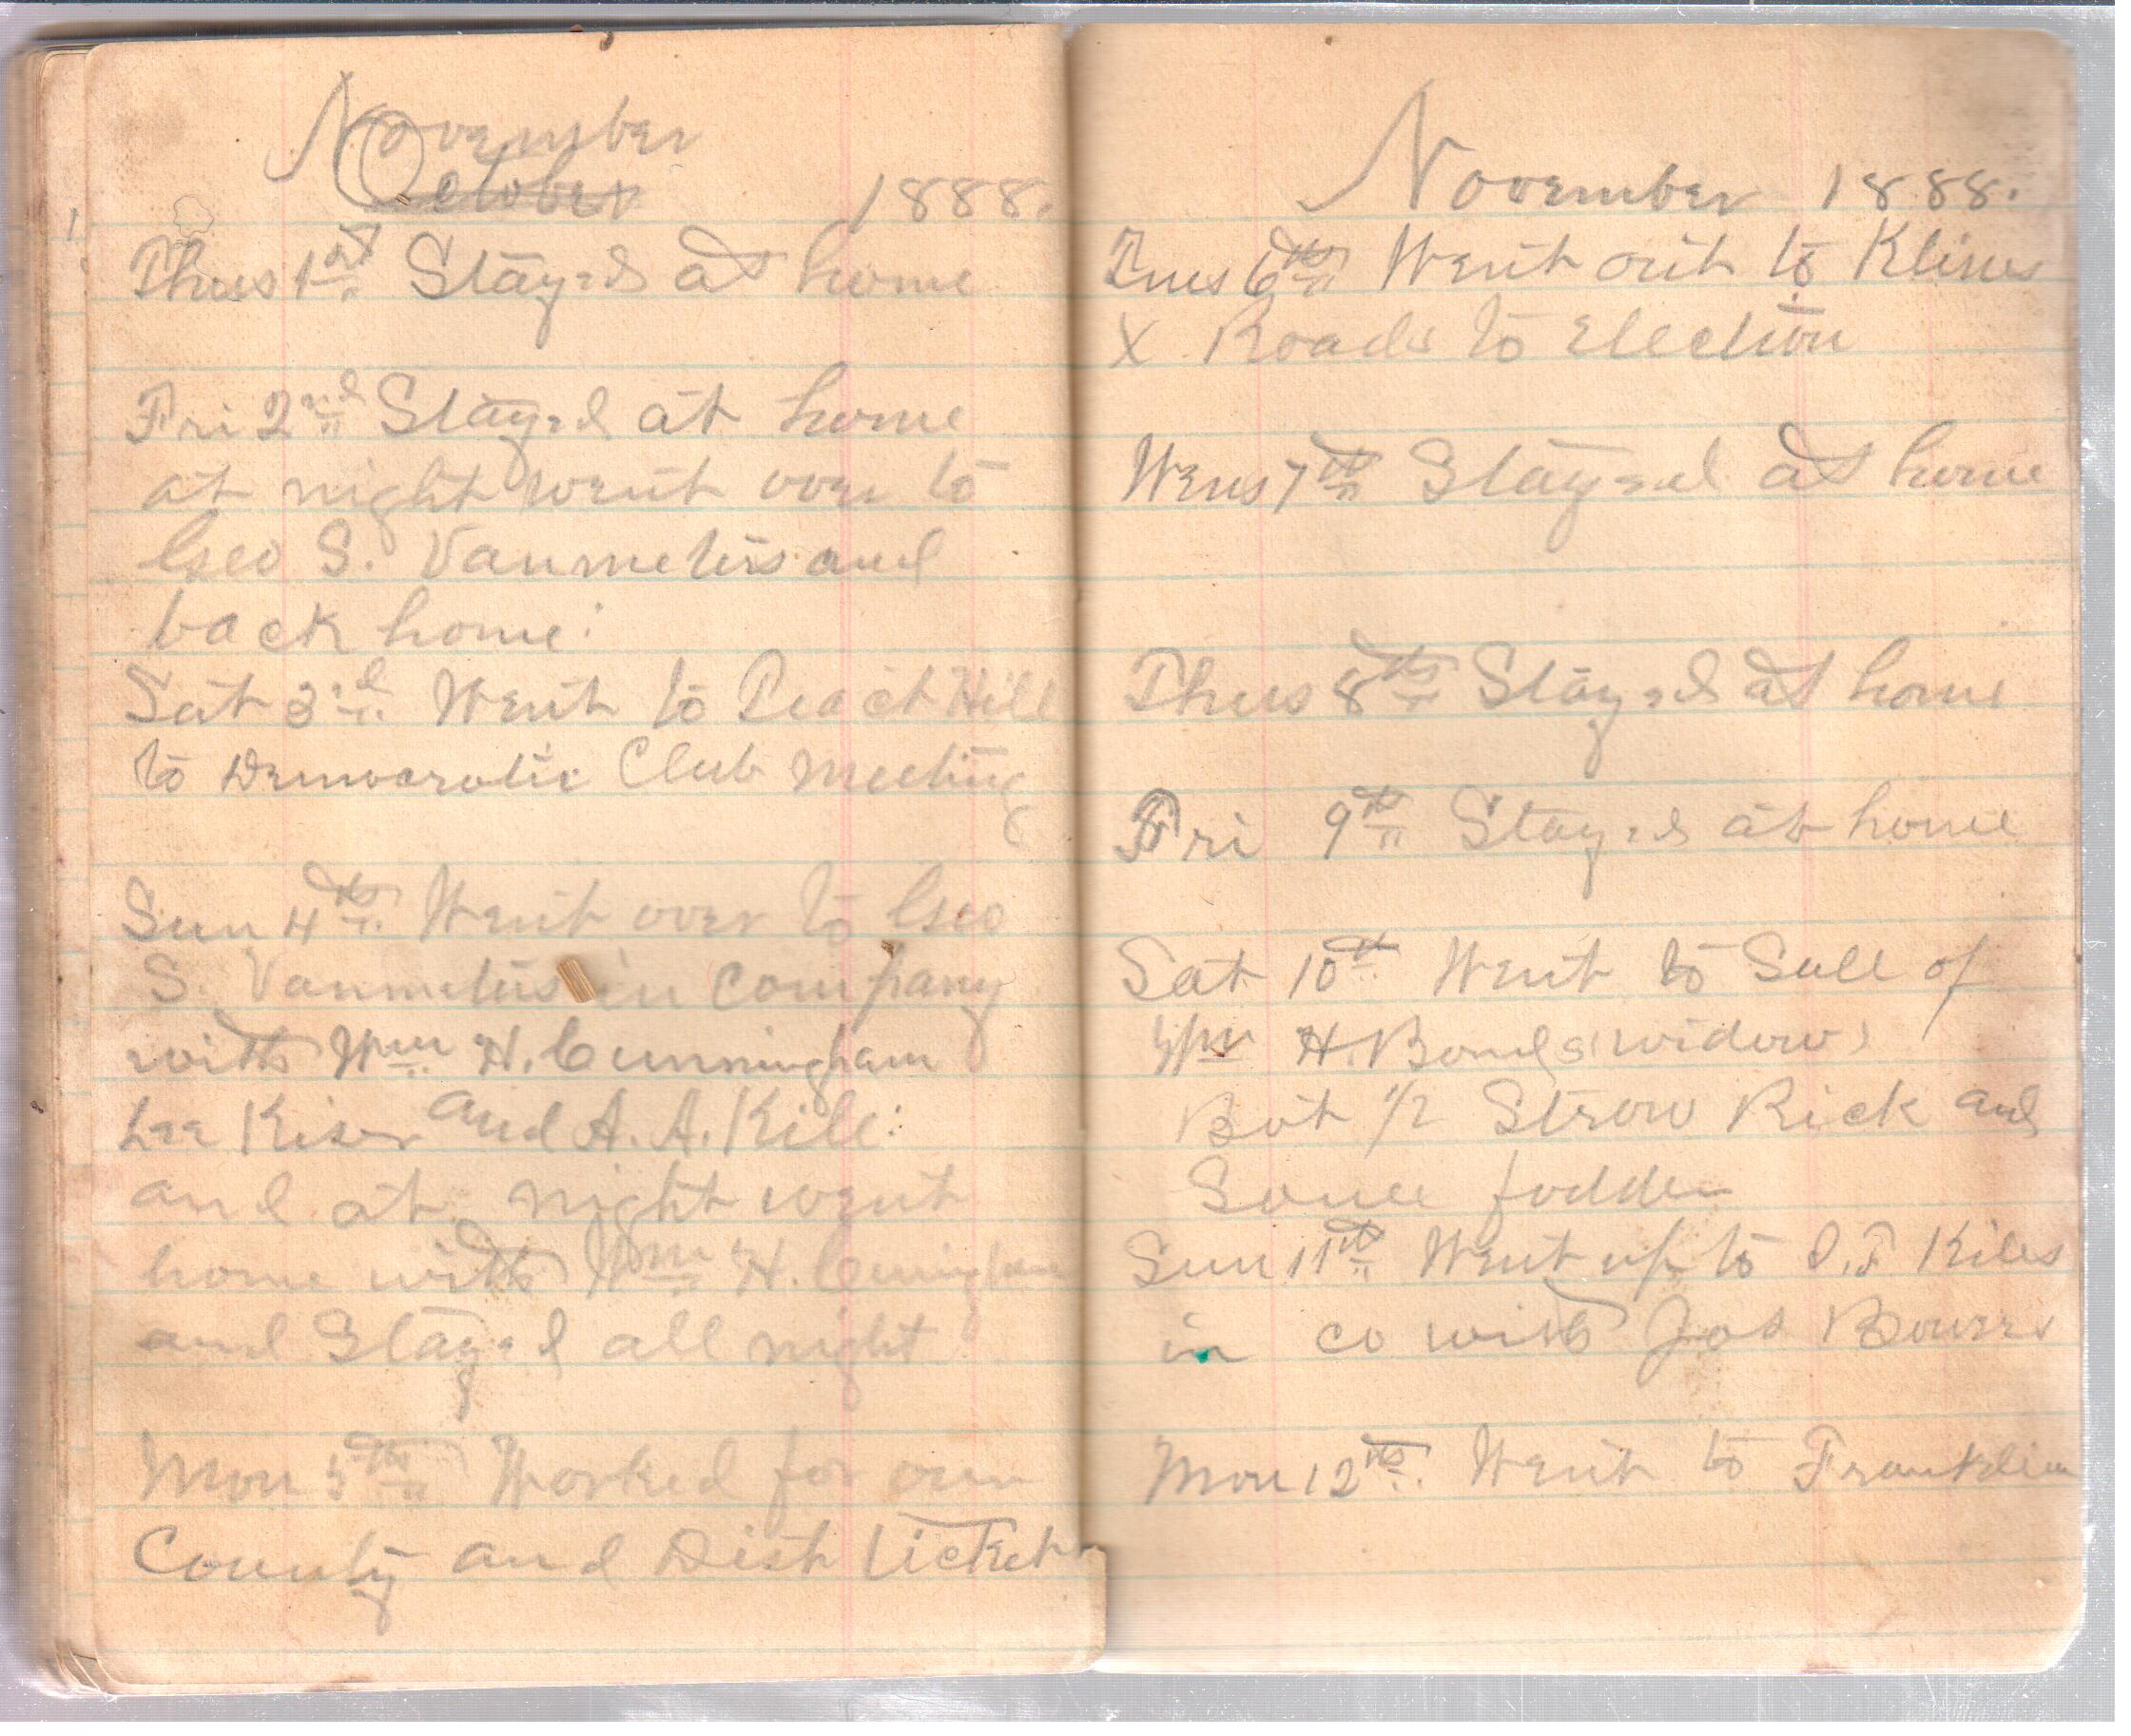 November
October 1888.
Thurs 1st Stayed at home
Fri 2nd Stayed at home
at night went over to
Geo S. Vanmeters and
back home:
Sat 3rd Went to Peach Hill
to Democratic Club Meeting
Sun 4th Went over to Geo
S. Vanmeters in company
with Wm H. Cunningham
Lee Kiser and A. A. Kile:
and at night went
home with Wm H. Cuningham
and Stayed all night
Mon 5th Worked for our
County and Dist Ticket
November 1888.
Tues 6th Went out to Klines
X Roads to Election
Wens 7th Stayed at home
Thurs 8th Stayed at home
Fri 9th Stayed at home
Sat 10th Went to Sale of
Wm H. Bonds (widow)
Bot 1/2 Strow Rick and
Some fodder
Sun 11th Went up to I. F Kiles
in co with Jos Bowers
Mon 12th Went to Franklin